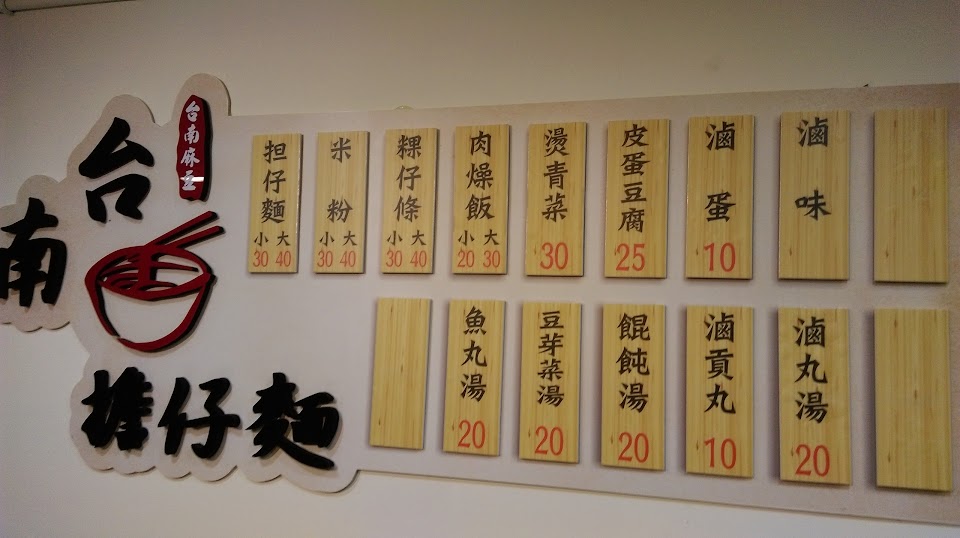 台南
台南麻豆
擔仔麵
担仔麵
小 大
30 40
米粉
小 大
30 40
粿仔條
小 大
30 40
肉燥飯
小 大
20 30
燙青菜
30
皮蛋豆腐
25
滷蛋
10
滷味
魚丸湯
20
豆芽菜湯
20
餛飩湯
20
滷貢丸
10
滷丸湯
20